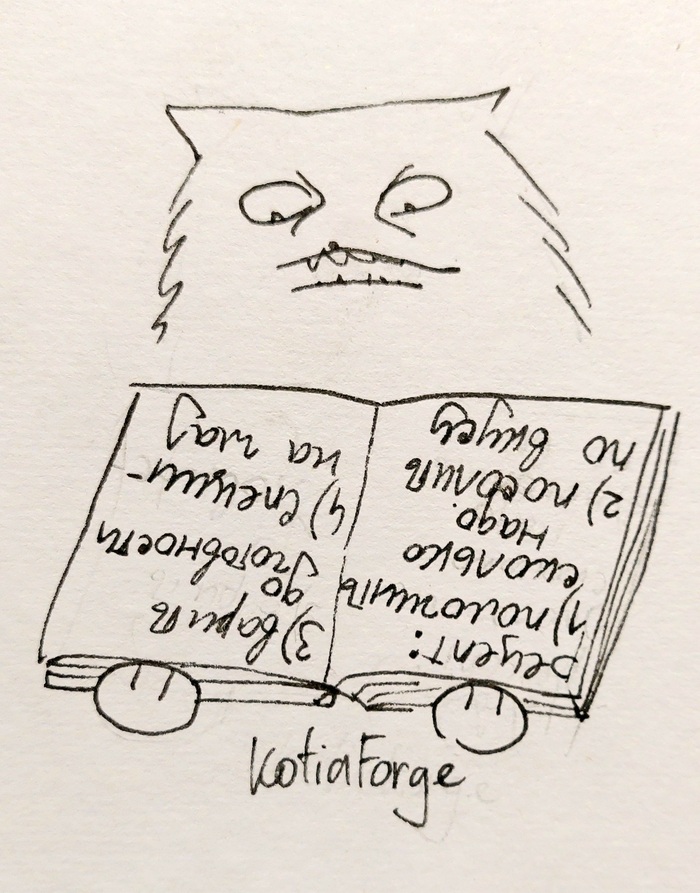 рецепт:
1) положить
сколько
надо
2) посолить
по вкусу
3) варить
до
готовности
4) специи-
на глаз
KotiaForge